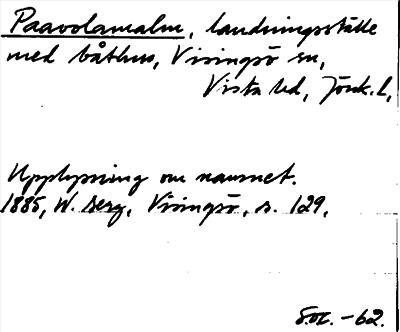 Paavolamalm, landningsställe
med båthus, Visingsö sn,
Vista hd, Jönk. l,
Upplysning om namnet.
1885, W. Berg, Visingsö, s. 129.
-62.